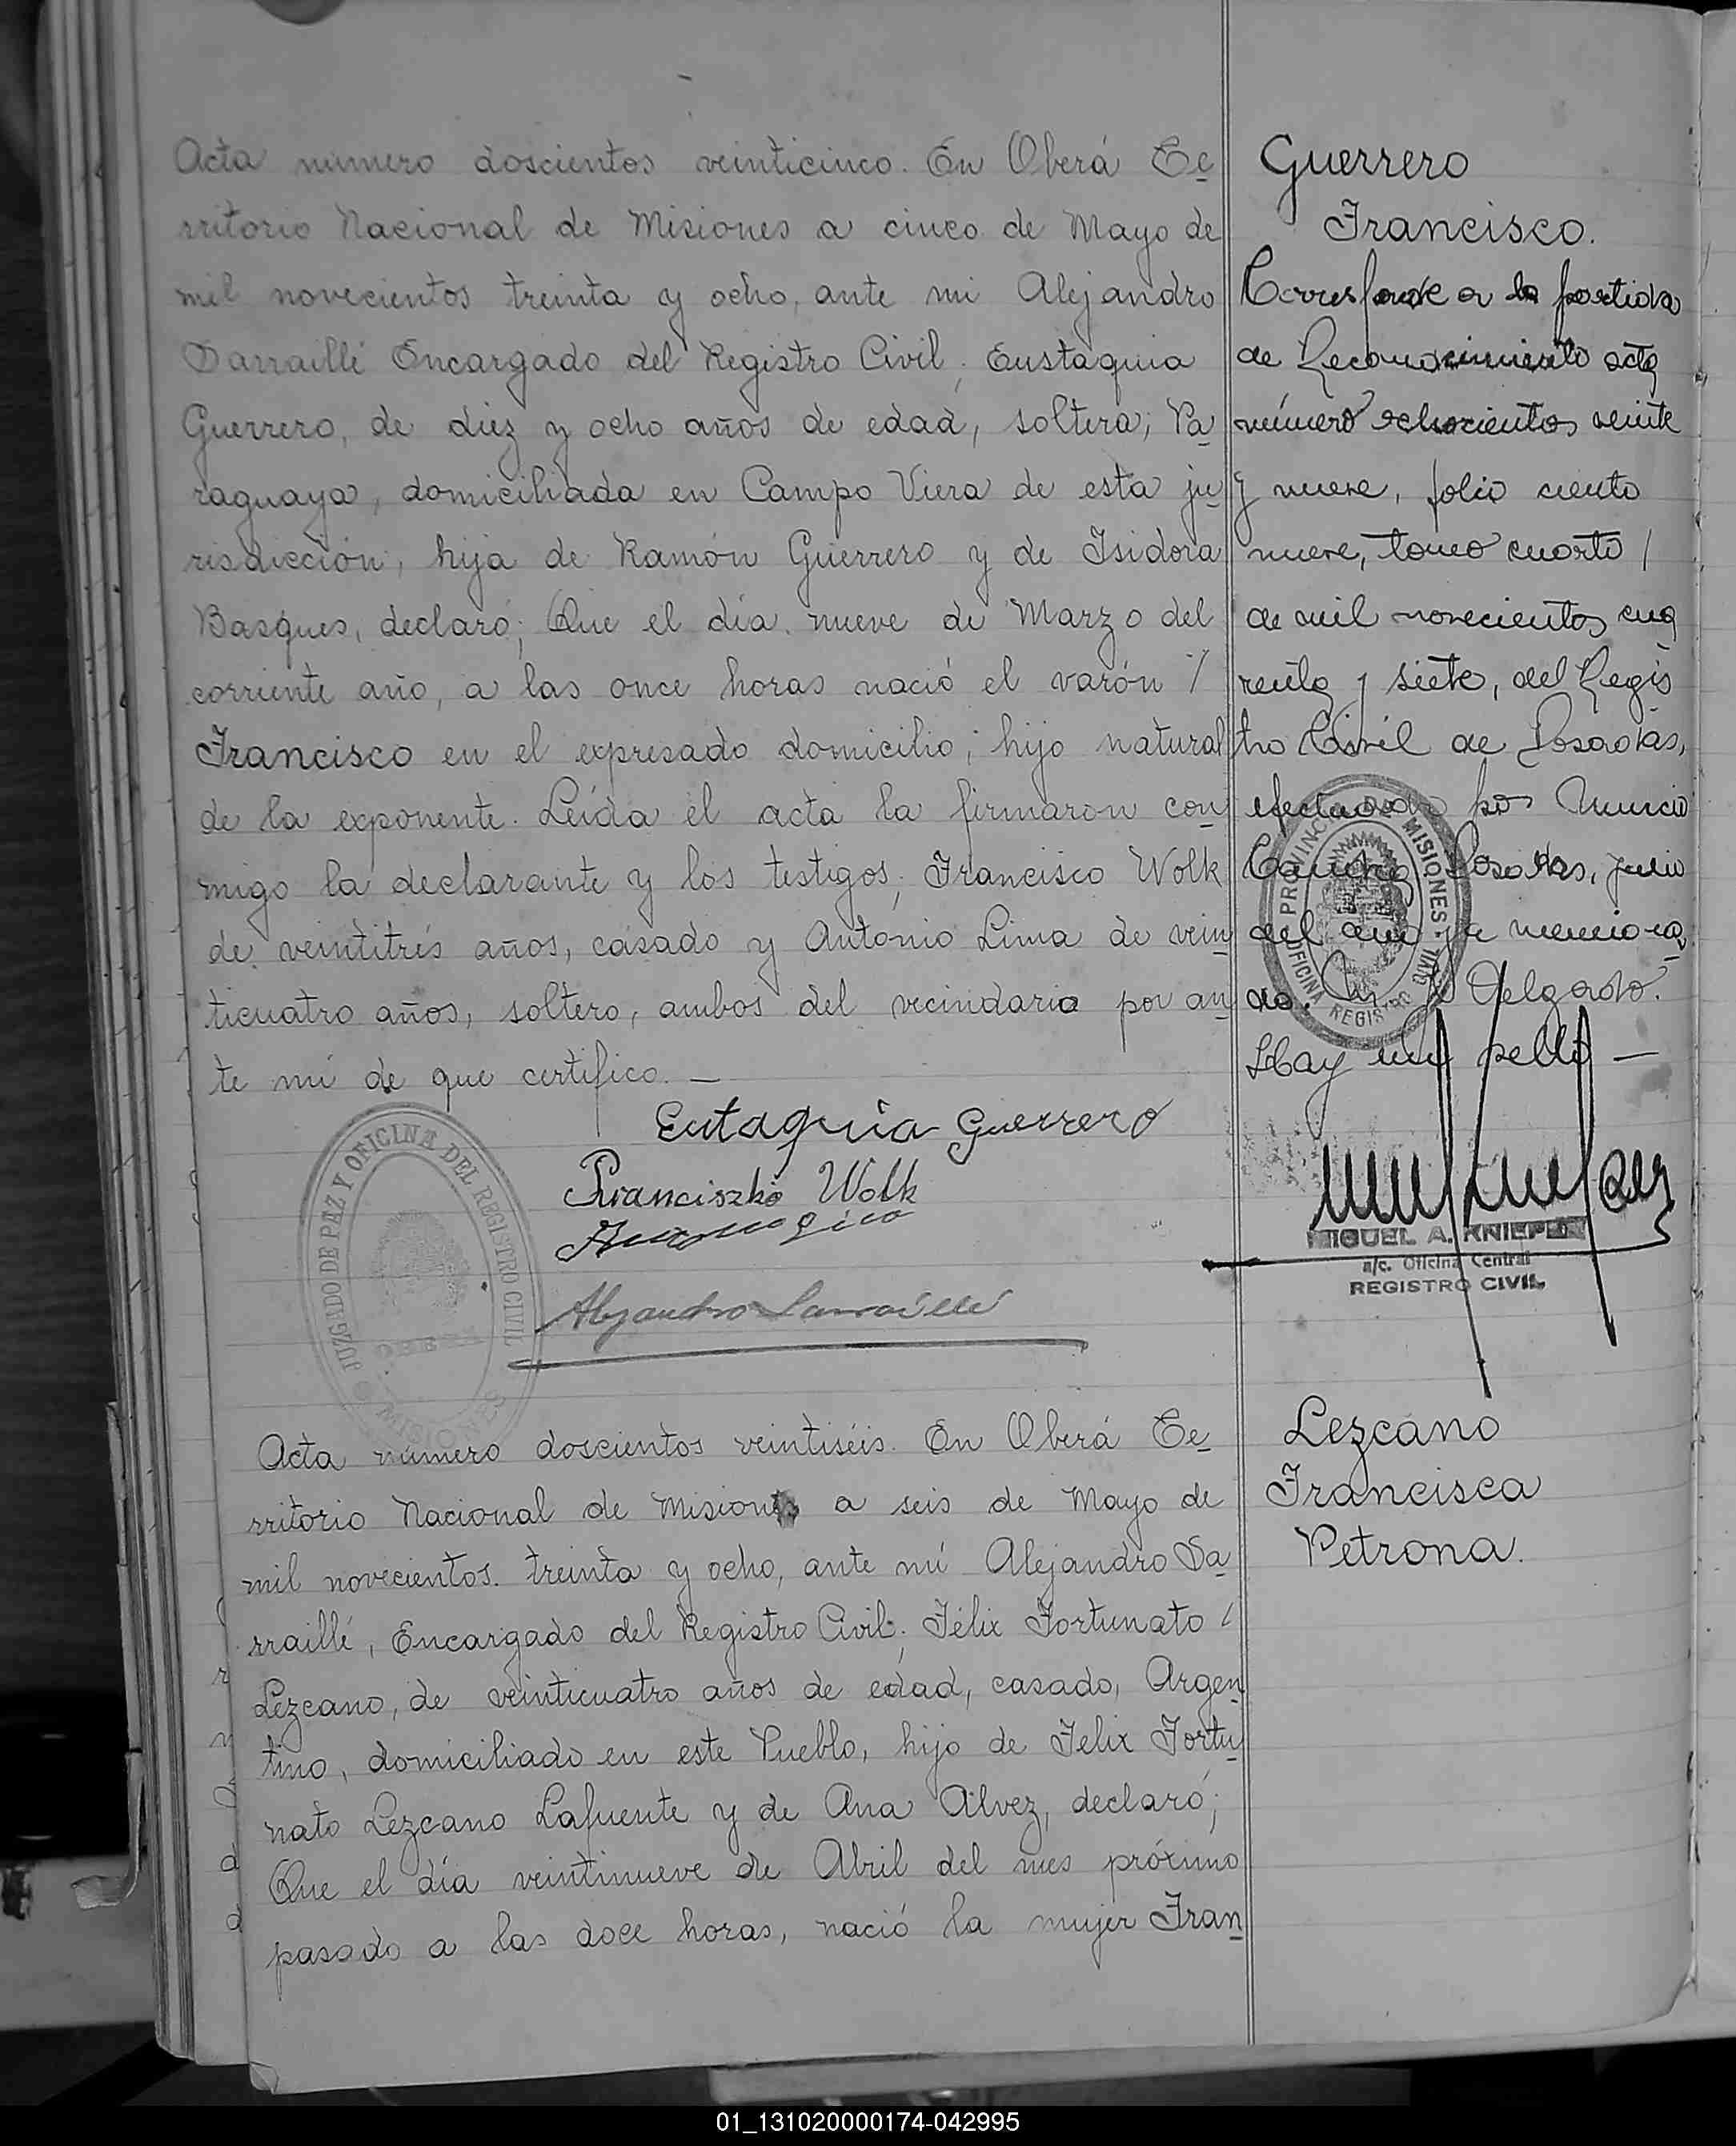 Acta número doscientos veinticinco. En Oberá Te
rritorio Nacional de Misiones a cinco de Mayo de
mil novecientos treinta y ocho, ante mi Alejandro
Darraillé Encargado del Registro Civil; Eustaquia
Guerrero, de diez y ocho años de edad, soltera, Pa
raguaya, domiciliada en Campo Viera de esta ju
risdicción, hija de Ramón Guerrero y de Isidora
Basques, declaró; Que el día nueve de Marzo del
corriente año, a las once horas nació el varón /
Francisco en el expresado domicilio; hijo natural
de la exponente. Leída el acta la firmaron con
migo la declarante y los testigos; Francisco Wolk
de veintitrés años, casado y Antonio Lima de vein
ticuatro años, soltero, ambos del vecindario por an
te mí de que certifico. —
Eutaquia Guerrero
Franciszko Wolk
Alejandro Darraillé
JUZGADO DE PAZ Y OFICINA DEL REGISTRO CIVIL
MISIONES
Guerrero
Francisco.
Corresponde a la partida
de Reconocimiento acta
número ochocientos veinte
y nueve, folio ciento
nueve, tomo cuarto /
de mil novecientos cua
renta y siete, del Regis
tro Civil de Posadas,
efectuado por Nuncio
Posadas, julio
del año ya menciona
do. Delgado.
Hay un sello —
PROVINCIA MISIONES
OFICINA REGISTRO CIVIL
MIGUEL A. KNIEPER
a/c. Oficina Central
REGISTRO CIVIL
Acta número doscientos veintiséis. En Oberá Te
rritorio Nacional de Misiones a seis de Mayo de
mil novecientos treinta y ocho, ante mí Alejandro Da
rraillé, Encargado del Registro Civil; Félix Fortunato /
Lezcano, de veinticuatro años de edad, casado, Argen
tino, domiciliado en este Pueblo, hijo de Felix Fortu
nato Lezcano Lafuente y de Ana Alvez, declaró;
Que el día veintinueve de Abril del mes próximo
pasado a las doce horas, nació la mujer Fran
Lezcano
Francisca
Petrona.
01_131020000174-042995